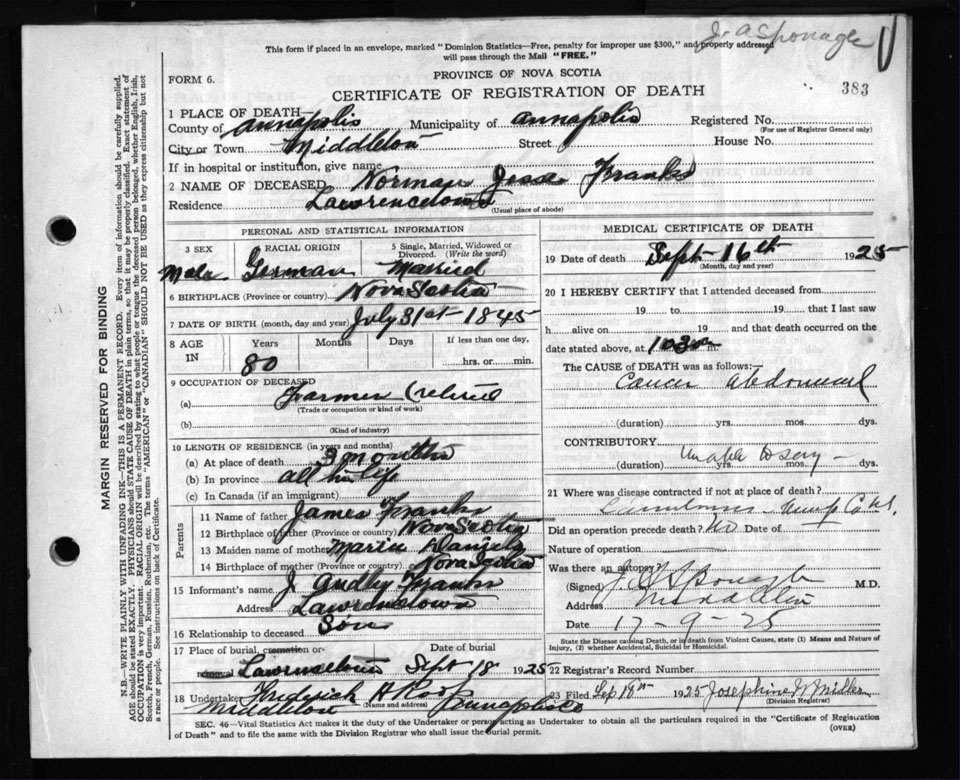 This form if placed in an envelope, marked "Dominion Statistics—Free, penalty for improper use $300," and properly addressed
will pass through the Mail "FREE."
PROVINCE OF NOVA SCOTIA
FORM 6.
CERTIFICATE OF REGISTRATION OF DEATH
383
1 PLACE OF DEATH—
County of Annapolis Municipality of Annapolis Registered No.
(For use of Registrar General only)
City or Town Middleton Street House No.
If in hospital or institution, give name
2 NAME OF DECEASED Norman Jesse Franks
Residence Lawrencetown
(Usual place of abode)
PERSONAL AND STATISTICAL INFORMATION
3 SEX RACIAL ORIGIN 5 Single, Married, Widowed or
Divorced. (Write the word)
Male German Married
6 BIRTHPLACE (Province or country) Nova Scotia
7 DATE OF BIRTH (month, day and year) July 31st 1845
8 AGE IN Years Months Days If less than one day,
80 hrs. or min.
9 OCCUPATION OF DECEASED
(a) Farmer (retired
(Trade or occupation or kind of work)
(b)
(Kind of industry)
10 LENGTH OF RESIDENCE (in years and months)
(a) At place of death 3 months
(b) In province All his life
(c) In Canada (if an immigrant)
Parents
11 Name of father James Franks
12 Birthplace of father (Province or country) Nova Scotia
13 Maiden name of mother Maria Daniels
14 Birthplace of mother (Province or country) Nova Scotia
15 Informant's name J Franks
Address Lawrencetown
16 Relationship to deceased Son
17 Place of burial, cremation or Date of burial
removal Lawrencetown Sept 18 1925
18 Undertaker Frederick H Roop
(Name and address)
Middleton Annapolis Co
MEDICAL CERTIFICATE OF DEATH
19 Date of death Sept 16th 1925
(Month, day and year)
20 I HEREBY CERTIFY that I attended deceased from
19 to 19 that I last saw
h alive on 19 and that death occurred on
date stated above, at m.
The CAUSE of DEATH was as follows:
Cancer abdominal
(duration) yrs. mos. dys.
CONTRIBUTORY
Unable to say
(duration) yrs. mos. dys.
21 Where was disease contracted if not at place of death?
Did an operation precede death? No Date of
Nature of operation
Was there an autopsy?
(Signed) M.D.
Address Middleton
Date 17-9-25
State the Disease causing Death, or in death from Violent Causes, state (1) Means and Nature of
Injury, (2) whether Accidental, Suicidal or Homicidal.
22 Registrar's Record Number
23 Filed Sep 18th 1925 Josephine
(Division Registrar)
SEC. 46—Vital Statistics Act makes it the duty of the Undertaker or person acting as Undertaker to obtain all the particulars required in the "Certificate of Registration
of Death" and to file the same with the Division Registrar who shall issue the burial permit.
(OVER)
MARGIN RESERVED FOR BINDING
N.B.—WRITE PLAINLY WITH UNFADING INK—THIS IS A PERMANENT RECORD. Every item of information should be carefully supplied.
AGE should be stated EXACTLY. PHYSICIANS should STATE CAUSE OF DEATH in plain terms, so that it may be properly classified. Exact statement of
OCCUPATION is very important. RACIAL ORIGIN will be described by stating to what people or tongue the deceased person belonged, whether English, Irish,
Scotch, French, German, Russian, Ruthenian, etc. The terms "AMERICAN" or "CANADIAN" SHOULD NOT BE USED as they express citizenship but not
a race or people. See instructions on back of Certificate.